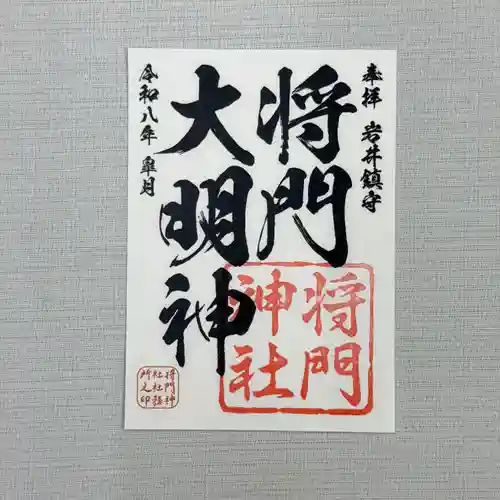 奉拝 岩井鎮守
将門
大明神
令和八年 皐月
将門
神社
将門神
社社務
所之印